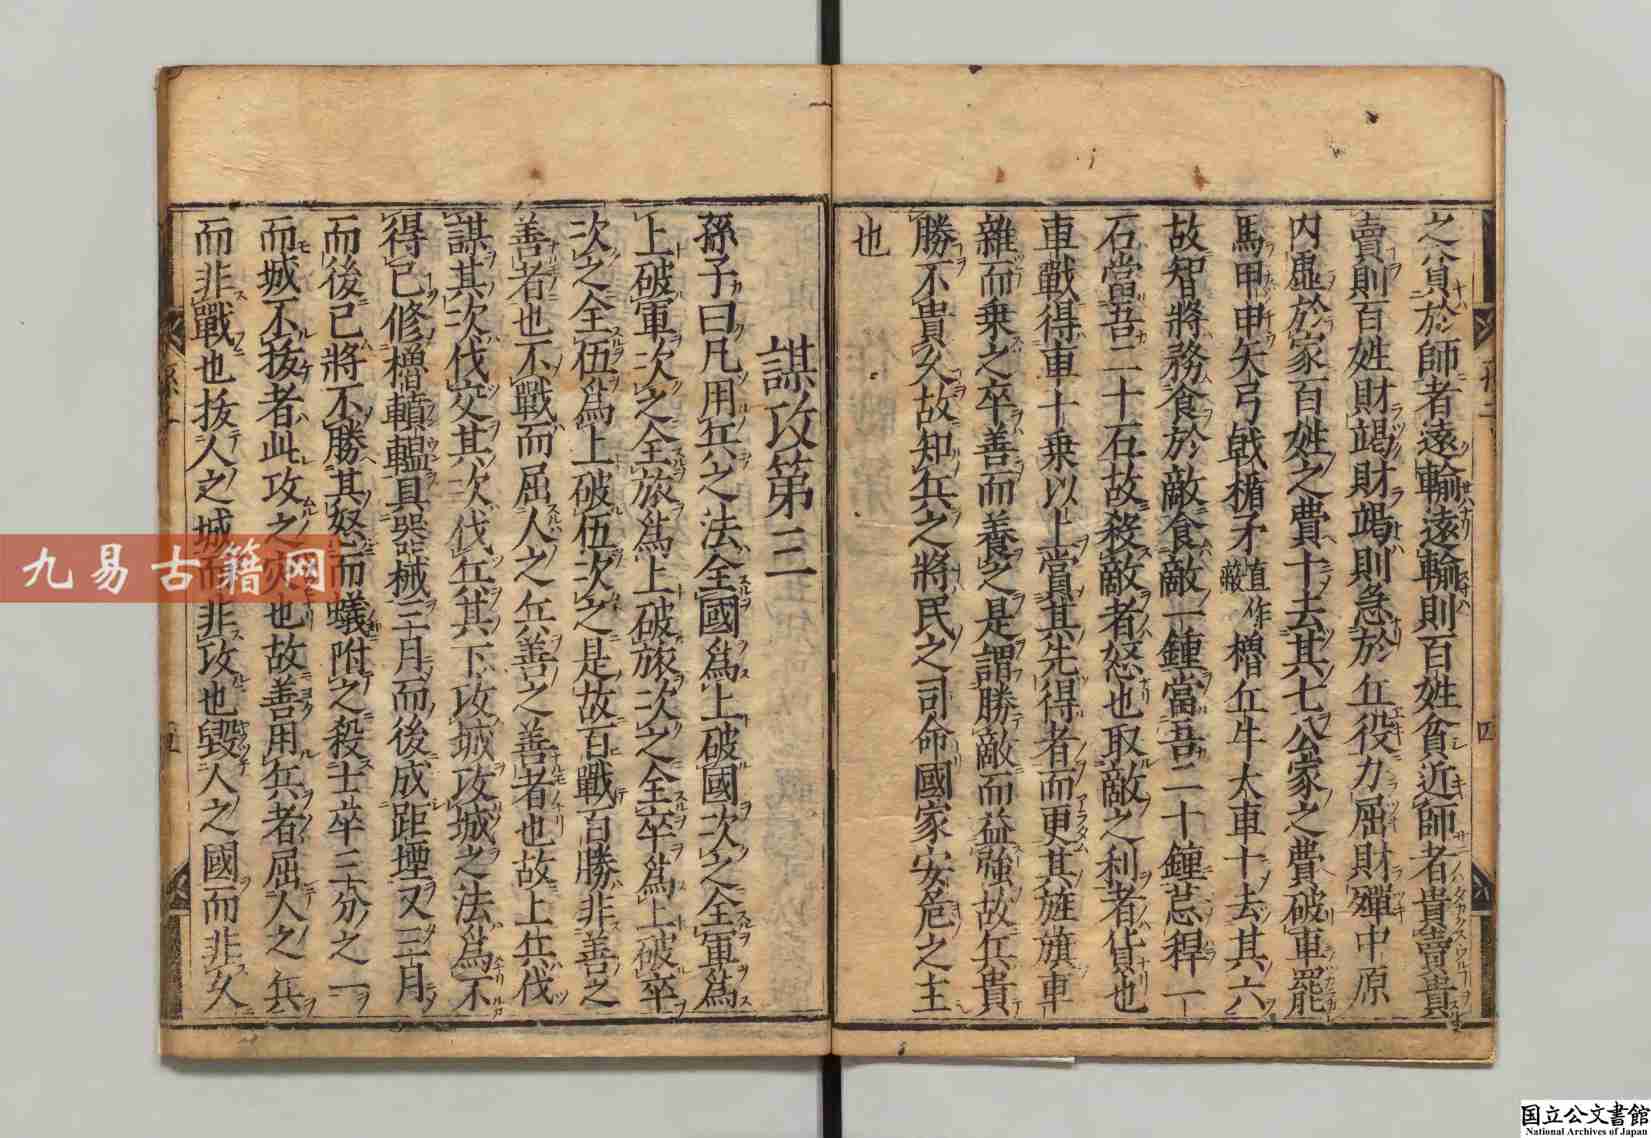 之貧於師者遠輸遠輸則百姓貧近師者貴賣貴
賣則百姓財竭財竭則急於丘役力屈財殫中原
内虛於家百姓之費十去其七公家之費破車罷
馬甲申矢弓戟楯矛櫓丘牛大車十去其六
故智將務食於敵食敵一鍾當吾二十鍾萁稈一
石當吾二十石故殺敵者怒也取敵之利者貨也
車戰得車十乗以上賞其先得者而更其旌旗車
雜而乗之卒善而養之是謂勝敵而益強故兵貴
勝不貴久故知兵之將民之司命國家安危之主
也
謀攻第三
孫子曰凡用兵之法全國爲上破國次之全軍爲
上破軍次之全旅爲上破旅次之全卒爲上破卒
次之全伍爲上破伍次之是故百戰百勝非善之
善者也不戰而屈人之兵善之善者也故上兵伐
謀其次伐交其次伐兵其下攻城攻城之法爲不
得已修櫓轒轀具器械三月而後成距堙又三月
而後已將不勝其怒而蟻附之殺士卒三分之一
而城不拔者此攻之灾也故善用兵者屈人之兵
而非戰也拔人之城而非攻也毀人之國而非久
九易古籍网
国立公文書館
National Archives of Japan